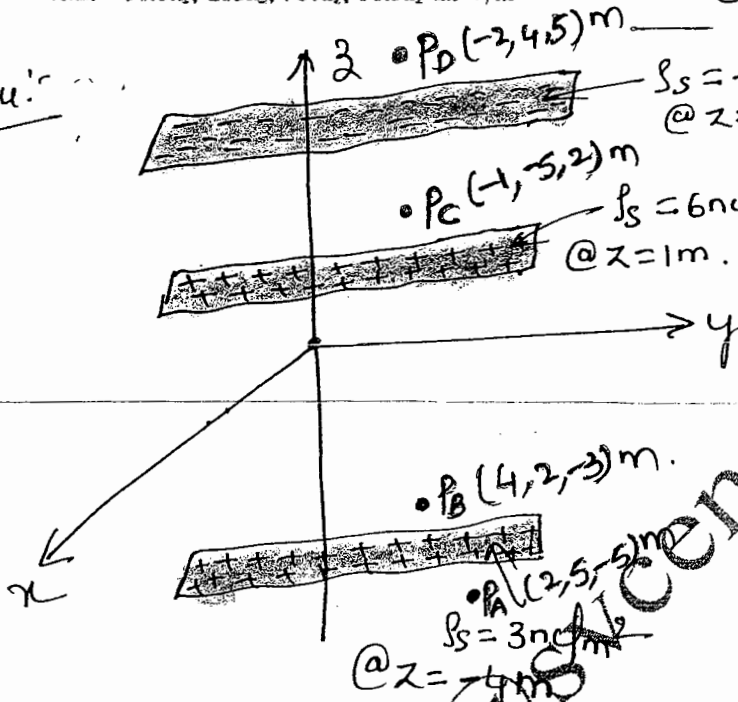 z
• P_D (-2,4,5) m
ρs = -
@ z=
• P_C (-1,-5,2) m
ρs = 6n
@ z=1m.
y
• P_B (4,2,-3) m.
x
• P_A (2,5,-5) m
ρs = 3nc/m²
@ z = -4m